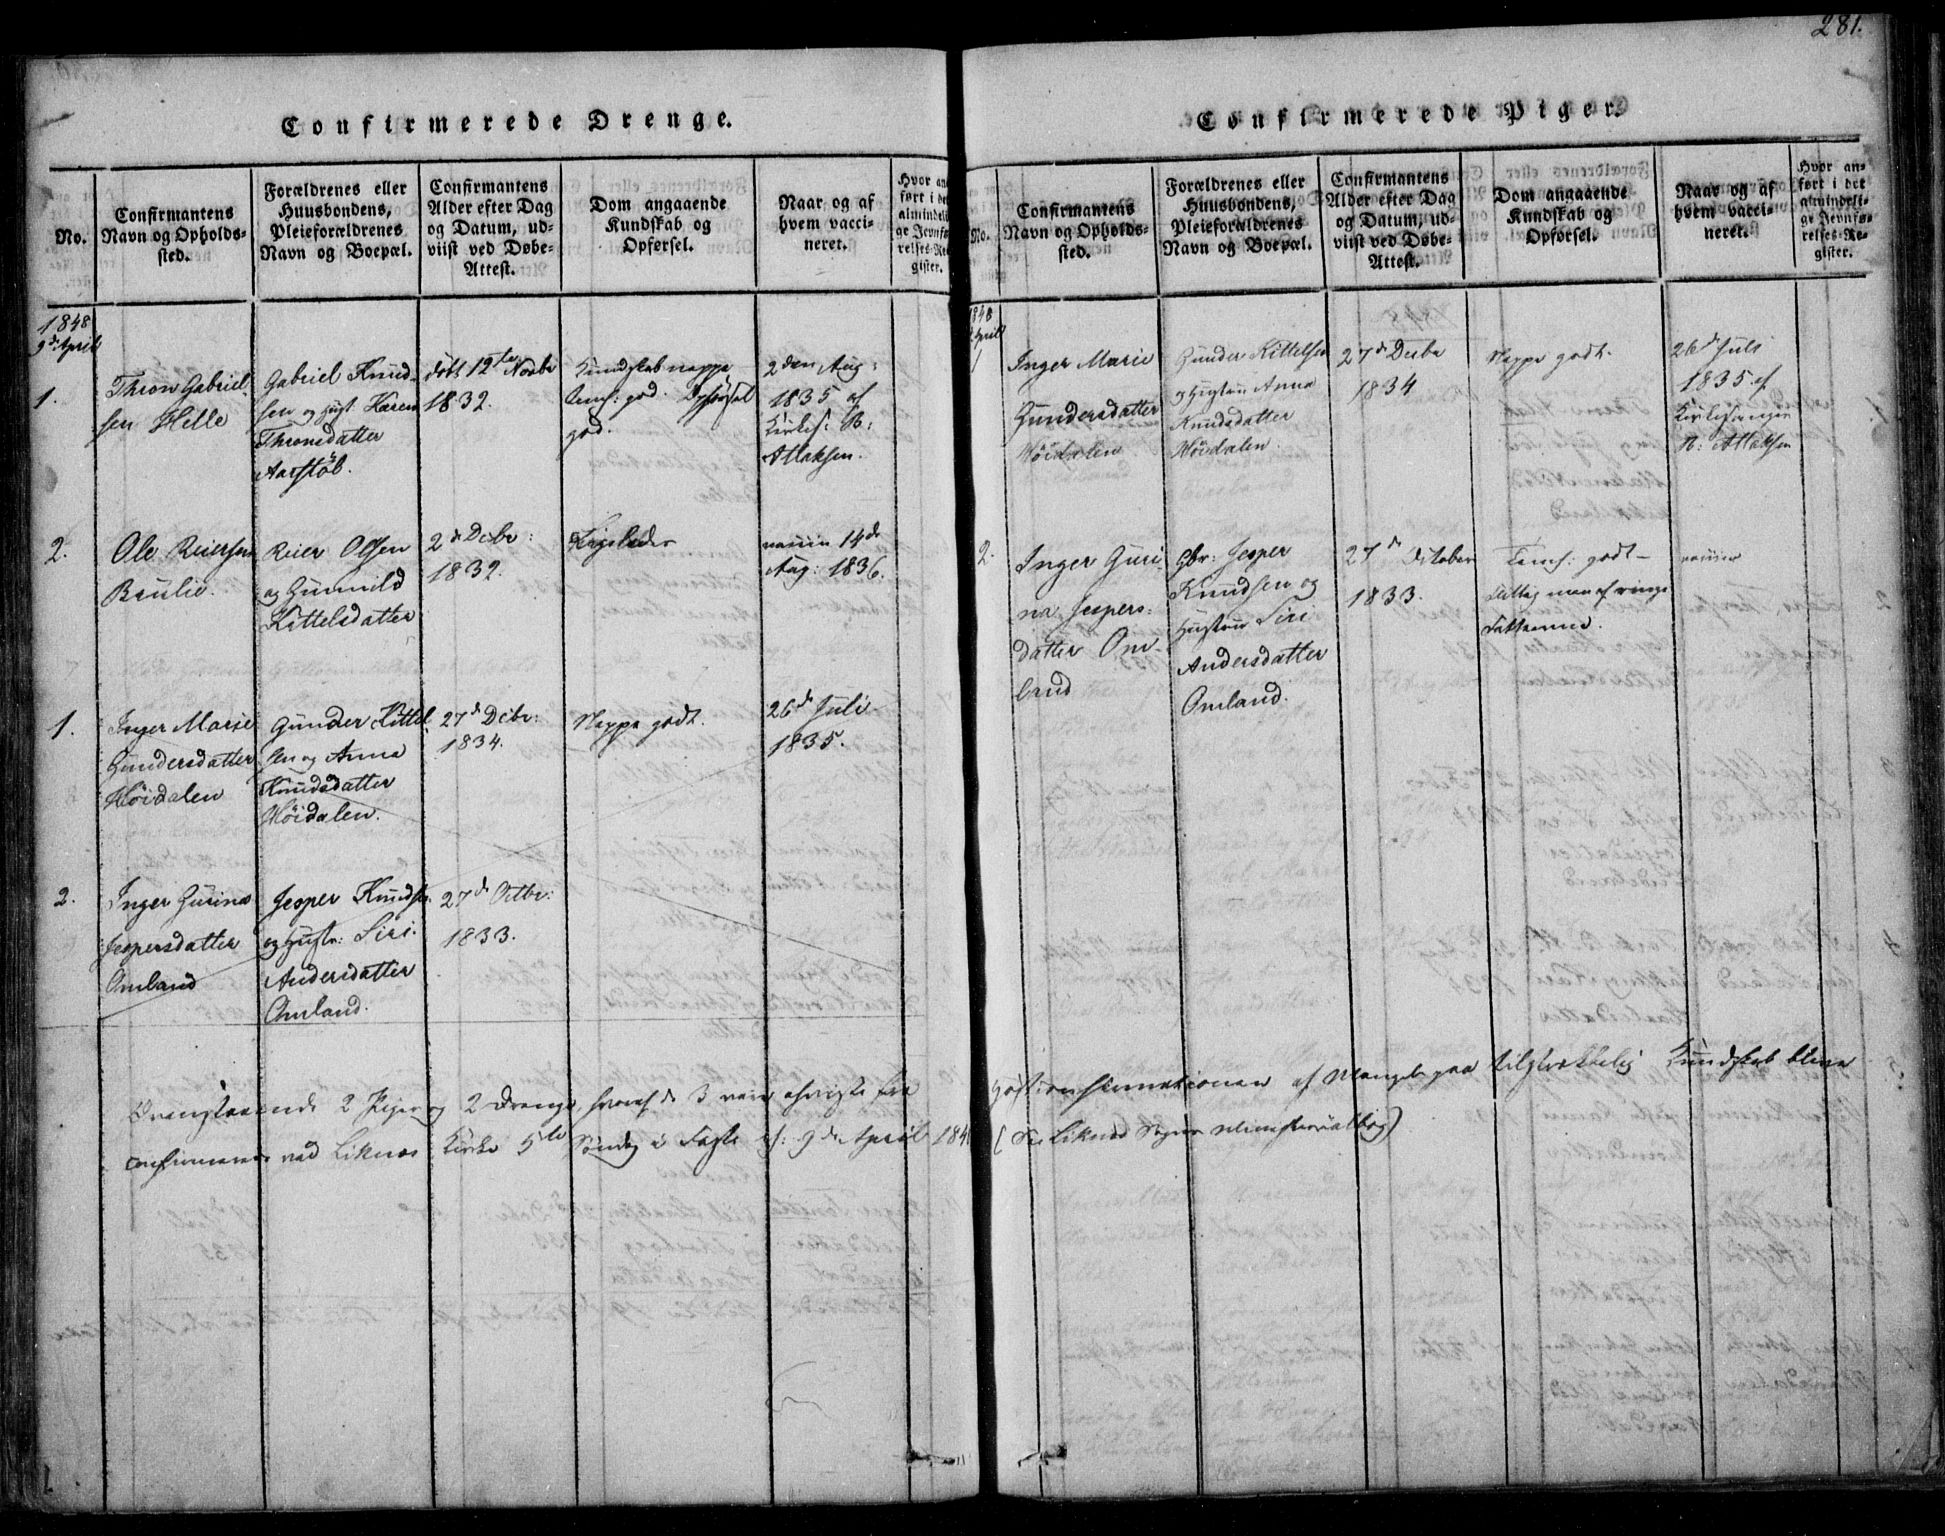 281.
Confirmerede Drenge.
No.
Confirmantens
Navn og Opholds-
sted.
Forældrenes eller
Huusbondens,
Pleieforældrenes
Navn og Boepæl.
Confirmantens
Alder efter Dag
og Datum, ud-
viist ved Døbe-
Attest.
Dom angaaende
Kundskab og
Opførsel.
Naar og af
hvem vacci-
neret.
Hvor an
ført i det
almindeli
ge Jevnfø-
relses-Re
gister.
1848
9de April
1.
Thron Gabriel-
sen Hille
Gabriel Knud-
sen og Hust. Karen
Thronsdatter
Aarstöb.
født 12te Novbr
1832.
Kundskab neppe
temf: god. Opførsel
god.
2den Aug:
1835 af
Kirkes: B:
Atlaksen.
2.
Ole Reiersen
Bruli
Reier Olsen
og Gunnild
Kittelsdatter
2de Decbr:
1832.
Ligeledes
vaccin 14de
Aug: 1836.
1.
Inger Marie
Gundersdatter
Höidalen
Gunder Kittel
sen og Anna
Knudsdatter
Höidalen.
27de Decbr:
1834.
Neppe godt.
26de Juli
1835.
2.
Inger Gurine
Jespersdatter
Omland
Jesper Knudsen
og Hustr: Siri
Andersdatter
Omland.
27de Octbr:
1833.
Ovenstaaende 2 Piger og 2 Drenge, hvoraf de 3 vare afviste fra
confirmeret ved Liknes Kirke 5te Söndag i Faste 9de April 1848
Confirmerede Piger.
No.
Confirmantens
Navn og Opholds-
sted.
Forældrenes eller
Huusbondens,
Pleieforældrenes
Navn og Boepæl.
Confirmantens
Alder efter Dag
og Datum, ud-
viist ved Døbe-
Attest.
Dom angaaende
Kundskab og
Opførsel.
Naar og af
hvem vacci-
neret.
Hvor an-
ført i det
almindeli-
ge Jevnfø-
relses-Re-
gister.
1848
April
1
Inger Marie
Gundersdatter
Höidalen
Gunder Kittelsen
og Hustru Anna
Knudsdatter
Höidalen.
27de Decbr
1834
Neppe godt.
26de Juli
1835 af
Kirkesanger
B: Atlaksen
2.
Inger Guri-
ne Jespers:
datter Om-
land
Gbr: Jesper
Knudsen og
Hustru Siri
Andersdatter
Omland.
27de October
1833.
Temf: godt-
flittig men af ringe
Fatteevne.
vaccin
Höstconfirmationen af Mangel paa tilstrækkelig Kundskab bleve
(See Liknes Sogns Ministerialbog)